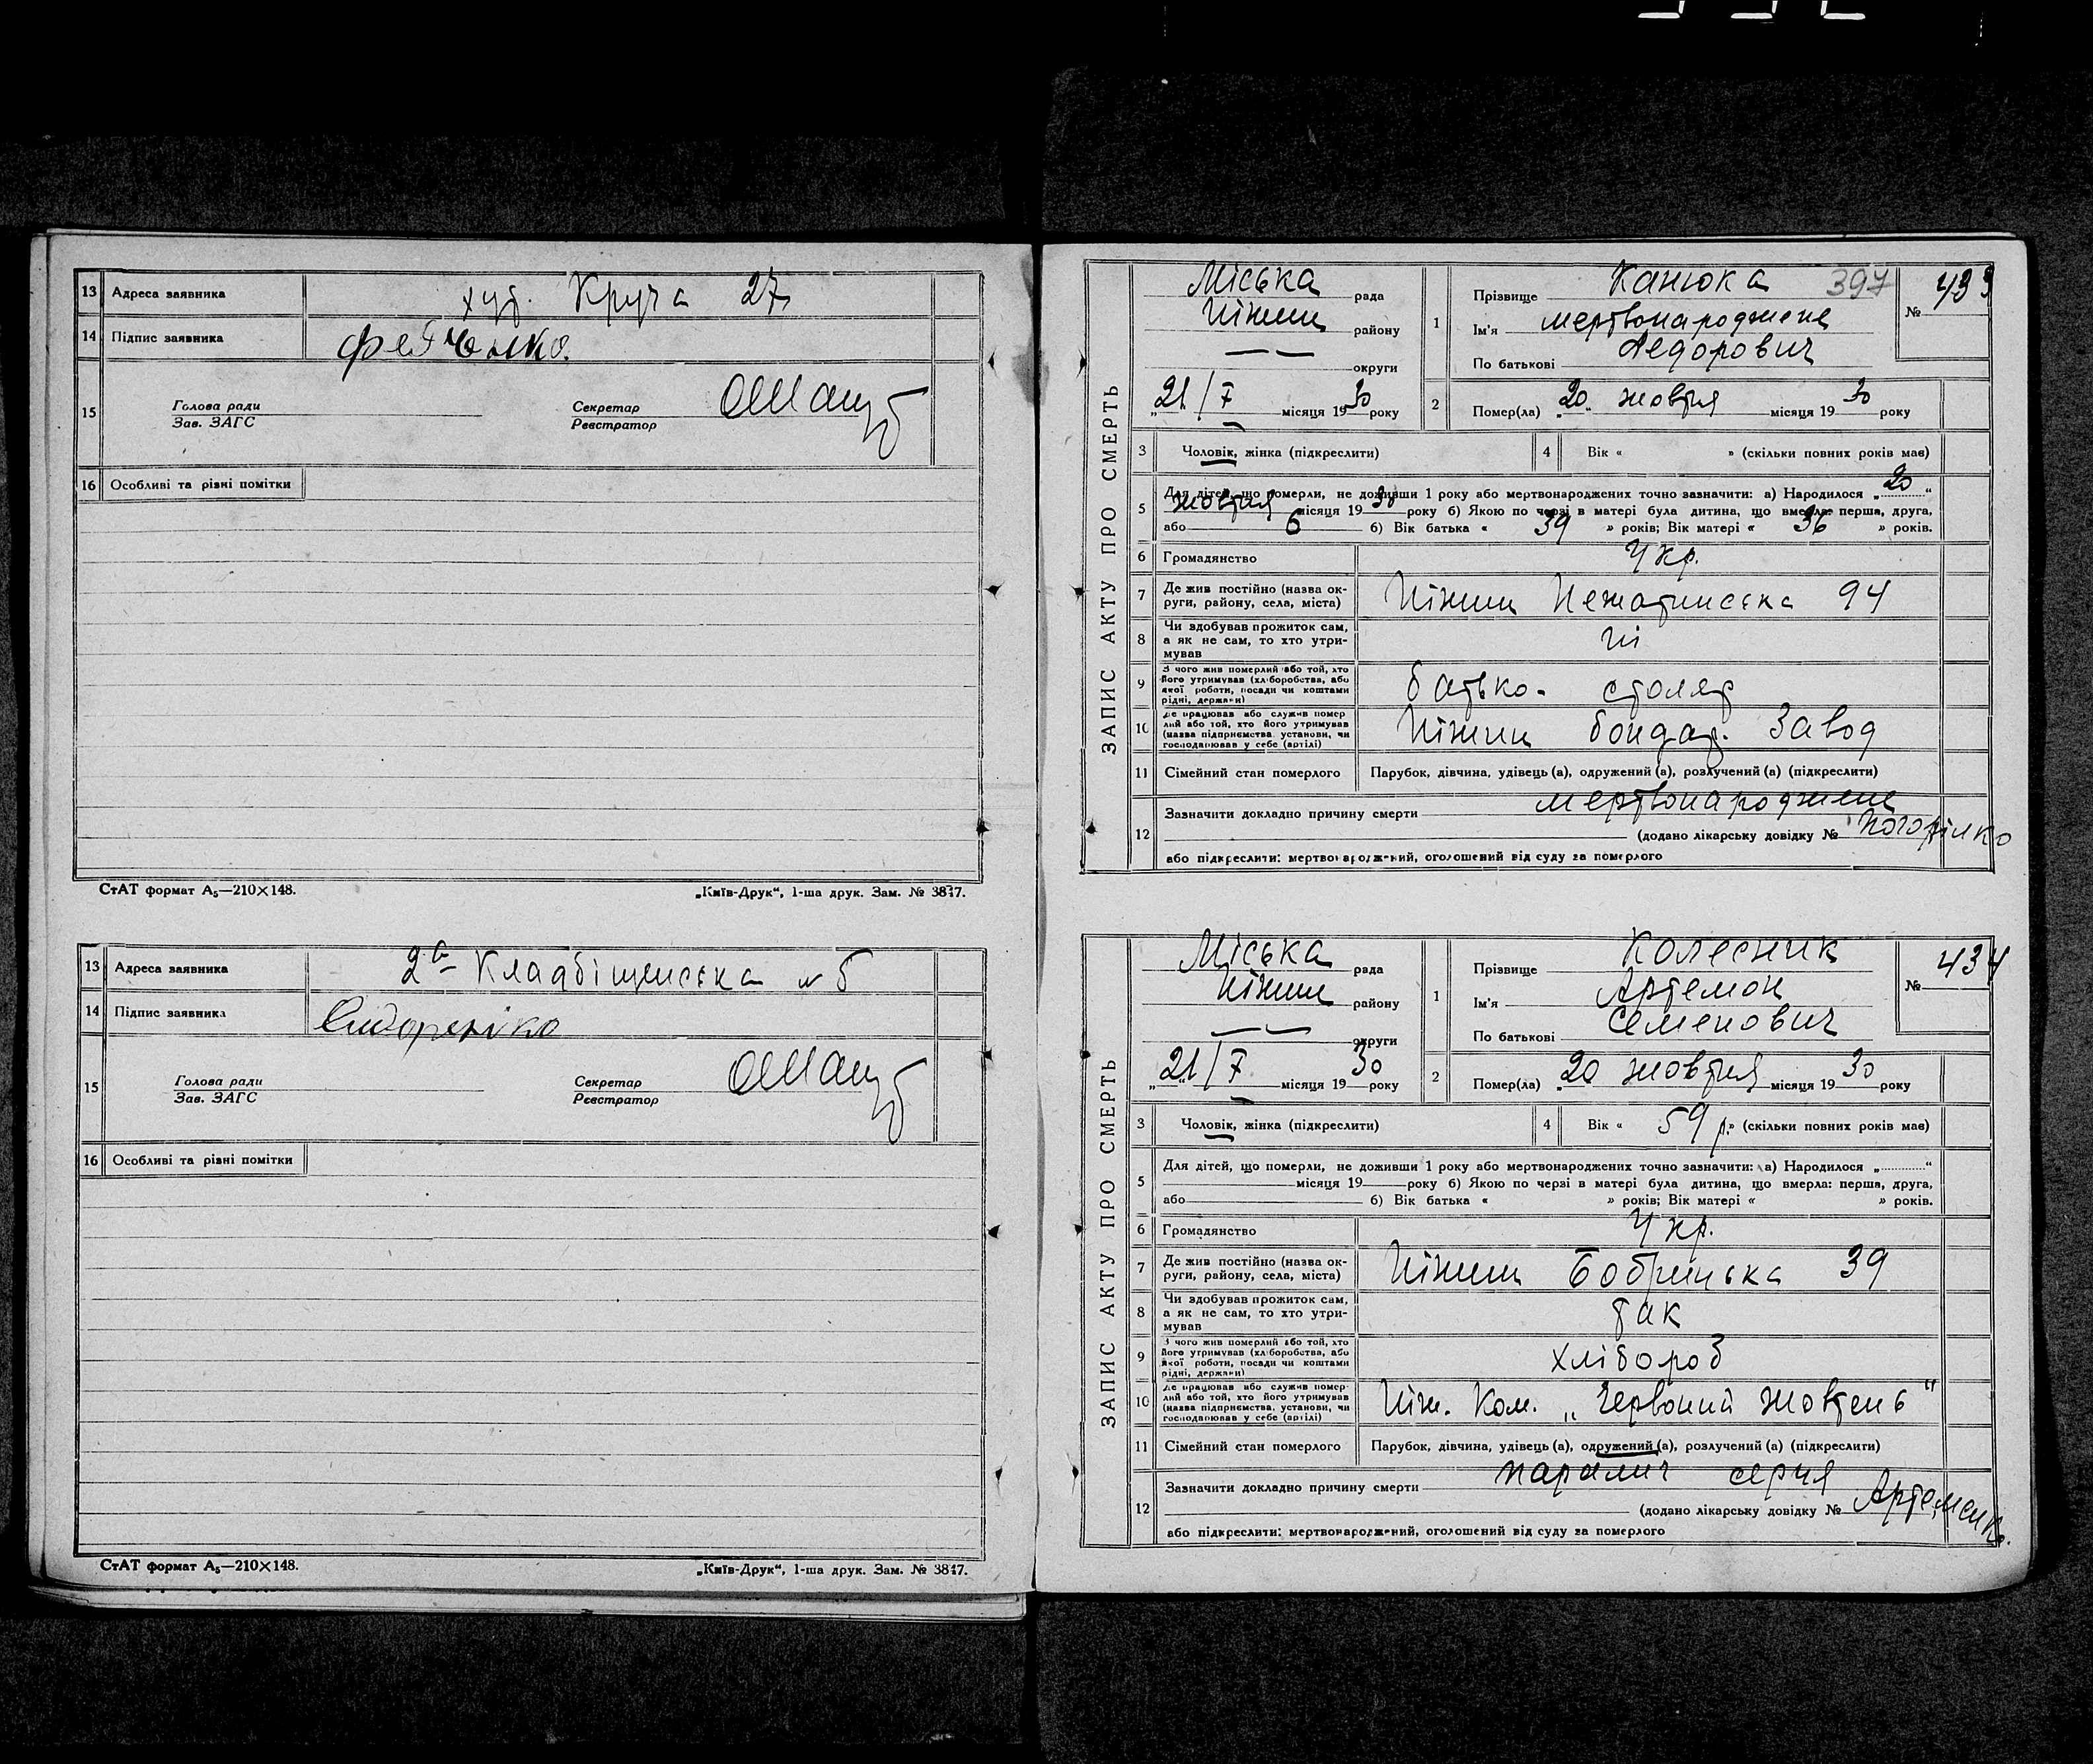 13 Адреса заявника хут. Круча 27
14 Підпис заявника
15 Голова ради
Зав. ЗАГС
Секретар
Реєстратор
16 Особливі та різні помітки
СтАТ формат А₅—210×148. „Київ-Друк“, 1-ша друк. Зам. № 3817.
13 Адреса заявника 2а Кладбіщенська № 5
14 Підпис заявника Сидоренко
15 Голова ради
Зав. ЗАГС
Секретар
Реєстратор
16 Особливі та різні помітки
СтАТ формат А₅—210×148. „Київ-Друк“, 1-ша друк. Зам. № 3817.
ЗАПИС АКТУ ПРО СМЕРТЬ
Міська рада
Ніжин району
— — округи
„21/X місяця 1930 року
397
№ 433
1 Прізвище Канюка
Ім'я мертвонароджене
По батькові Федорович
2 Помер(ла) „20“ жовтня місяця 1930 року
3 Чоловік, жінка (підкреслити)
4 Вік « » (скільки повних років має)
5 Для дітей, що померли, не доживши 1 року або мертвонароджених точно зазначити: а) Народилося „20“
жовтня місяця 1930 року б) Якою по черзі в матері була дитина, що вмерла: перша, друга,
або 6 б) Вік батька « 39 » років; Вік матері « 36 » років.
6 Громадянство Укр.
7 Де жив постійно (назва ок-
руги, району, села, міста) Ніжин Нежатинська 94
8 Чи здобував прожиток сам,
а як не сам, то хто утри-
мував ні
9 З чого жив померлий або той, хто
його утримував (хліборобства, або
якої роботи, посади чи коштами
рідні, держави) батько - столяр
10 Де працював або служив помер
лий або той, хто його утримував
(назва підприємства, установи, чи
господарював у себе (артілі) Ніжин бондар. завод
11 Сімейний стан померлого Парубок, дівчина, удівець (а), одружений (а), розлучений (а) (підкреслити)
12 Зазначити докладно причину смерти мертвонароджене
(додано лікарську довідку № Погорілко
або підкреслити: мертвонароджений, оголошений від суду за померлого
ЗАПИС АКТУ ПРО СМЕРТЬ
Міська рада
Ніжин району
— — округи
„21“/X місяця 1930 року
№ 434
1 Прізвище Колесник
Ім'я Артемон
По батькові Семенович
2 Помер(ла) 20 жовтня місяця 1930 року
3 Чоловік, жінка (підкреслити)
4 Вік « 59 р.» (скільки повних років має)
5 Для дітей, що померли, не доживши 1 року або мертвонароджених точно зазначити: а) Народилося „ “
місяця 19 року б) Якою по черзі в матері була дитина, що вмерла: перша, друга,
або б) Вік батька « » років; Вік матері « » років.
6 Громадянство Укр.
7 Де жив постійно (назва ок-
руги, району, села, міста) Ніжин Бобрицька 39
8 Чи здобував прожиток сам,
а як не сам, то хто утри-
мував так
9 З чого жив померлий або той, хто
його утримував (хліборобства, або
якої роботи, посади чи коштами
рідні, держави) хлібороб
10 Де працював або служив помер
лий або той, хто його утримував
(назва підприємства, установи, чи
господарював у себе (артілі) Ніж. Ком. „Червоний Жовтень“
11 Сімейний стан померлого Парубок, дівчина, удівець (а), одружений (а), розлучений (а) (підкреслити)
12 Зазначити докладно причину смерти параліч серця
(додано лікарську довідку № Артеменко.
або підкреслити: мертвонароджений, оголошений від суду за померлого